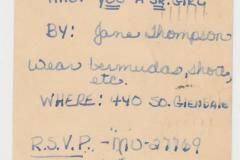 YOU A SR. GIRL
BY: Jane Thompson
Wear bermudas, shorts,
etc.
WHERE: 440 SO. GLENDALE
R.S.V.P. - MU-27769